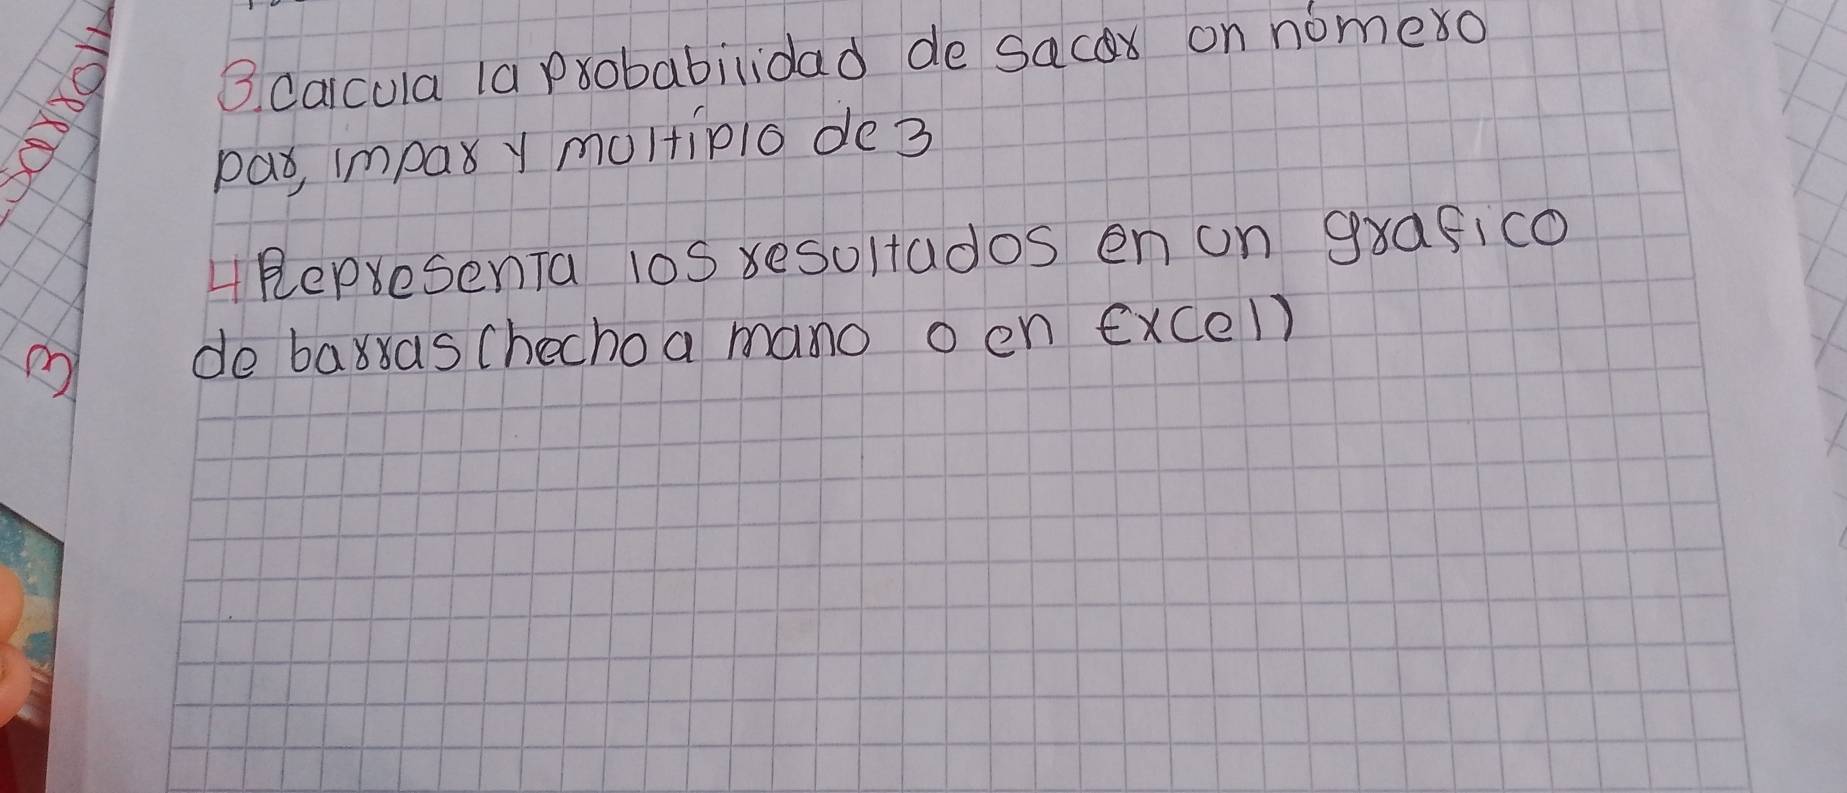 3. calcula la probabilidad de sacar un número
par, impar y multiplo de 3
4 Representa los resultados en un grafico
de barras (hecho a mano o en Excel)
3